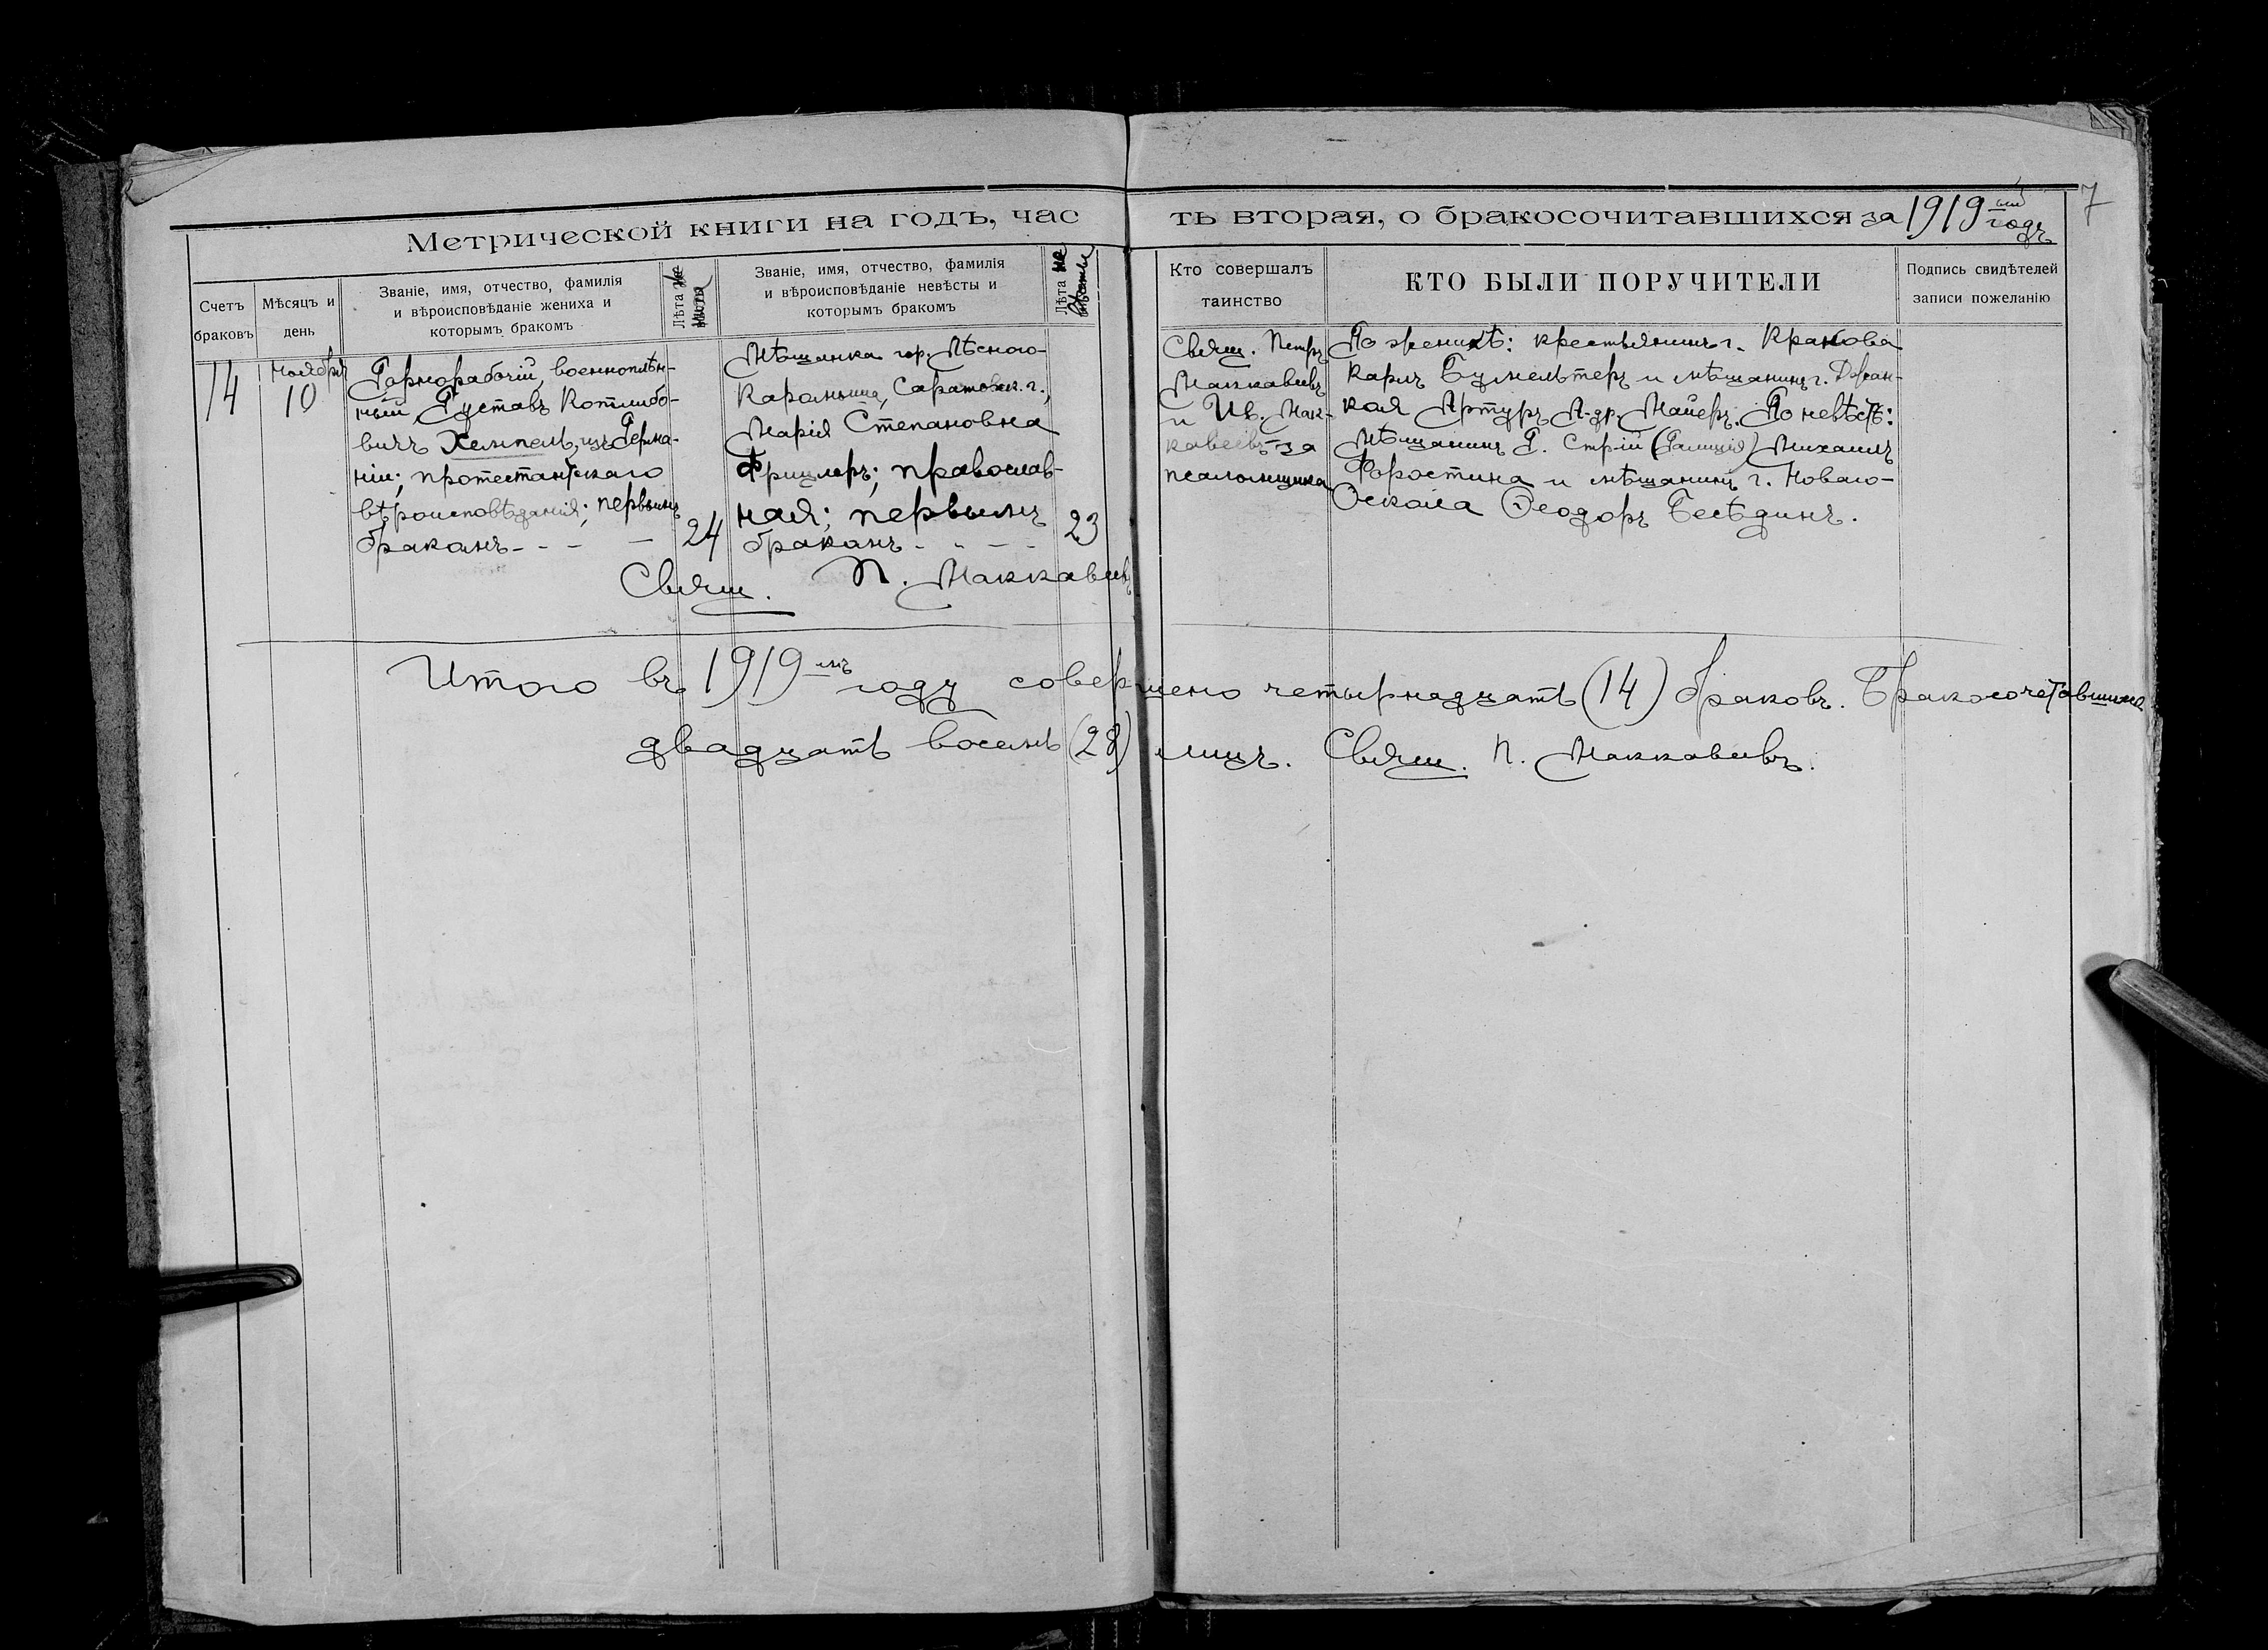 Метрической книги на годъ, час
ть вторая, о бракосочитавшихся за 1919 ый годъ
7
Счетъ браковъ
Мѣсяцъ и день
Званіе, имя, отчество, фамилія
и вѣроисповѣданіе жениха и
которымъ бракомъ
Лѣта
Званіе, имя, отчество, фамилія
и вѣроисповѣданіе невѣсты и
которымъ бракомъ
Лѣта
Кто совершалъ
таинство
КТО БЫЛИ ПОРУЧИТЕЛИ
Подпись свидѣтелей
записи пожеланію
14
Ноября
10
Горнорабочій, военноплѣн-
ный Густавъ Котлибо-
вичъ Хемпель, изъ Герма-
ніи; протестантскаго
вѣроисповѣданія; первымъ
бракомъ - - - - 24
Мѣщанка гор. Лѣсного-
Карамыша, Саратовск. г.,
Марія Степановна
Фрицлеръ; православ-
ная; первымъ
бракомъ - - - - 23
Свящ. П. Маккавеевъ
Свящ. Петръ
Маккавеевъ
и Ив. Мак-
кавеевъ-за
псаломщика
По женихѣ: крестьянинъ г. Кракова
Карлъ и мѣщанинъ г.
Артуръ А-др. Майеръ. По невѣстѣ:
Мѣщанинъ г. Стрій (Галиція) Михаилъ
Форостина и мѣщанинъ г. Новаго-
Оскола Ѳеодоръ Бесѣдинъ.
Итого въ 1919 мъ году совершено четырнадцать (14) браковъ. Бракосочетавшихся
двадцать восемь (28) лицъ. Свящ. П. Маккавеевъ.